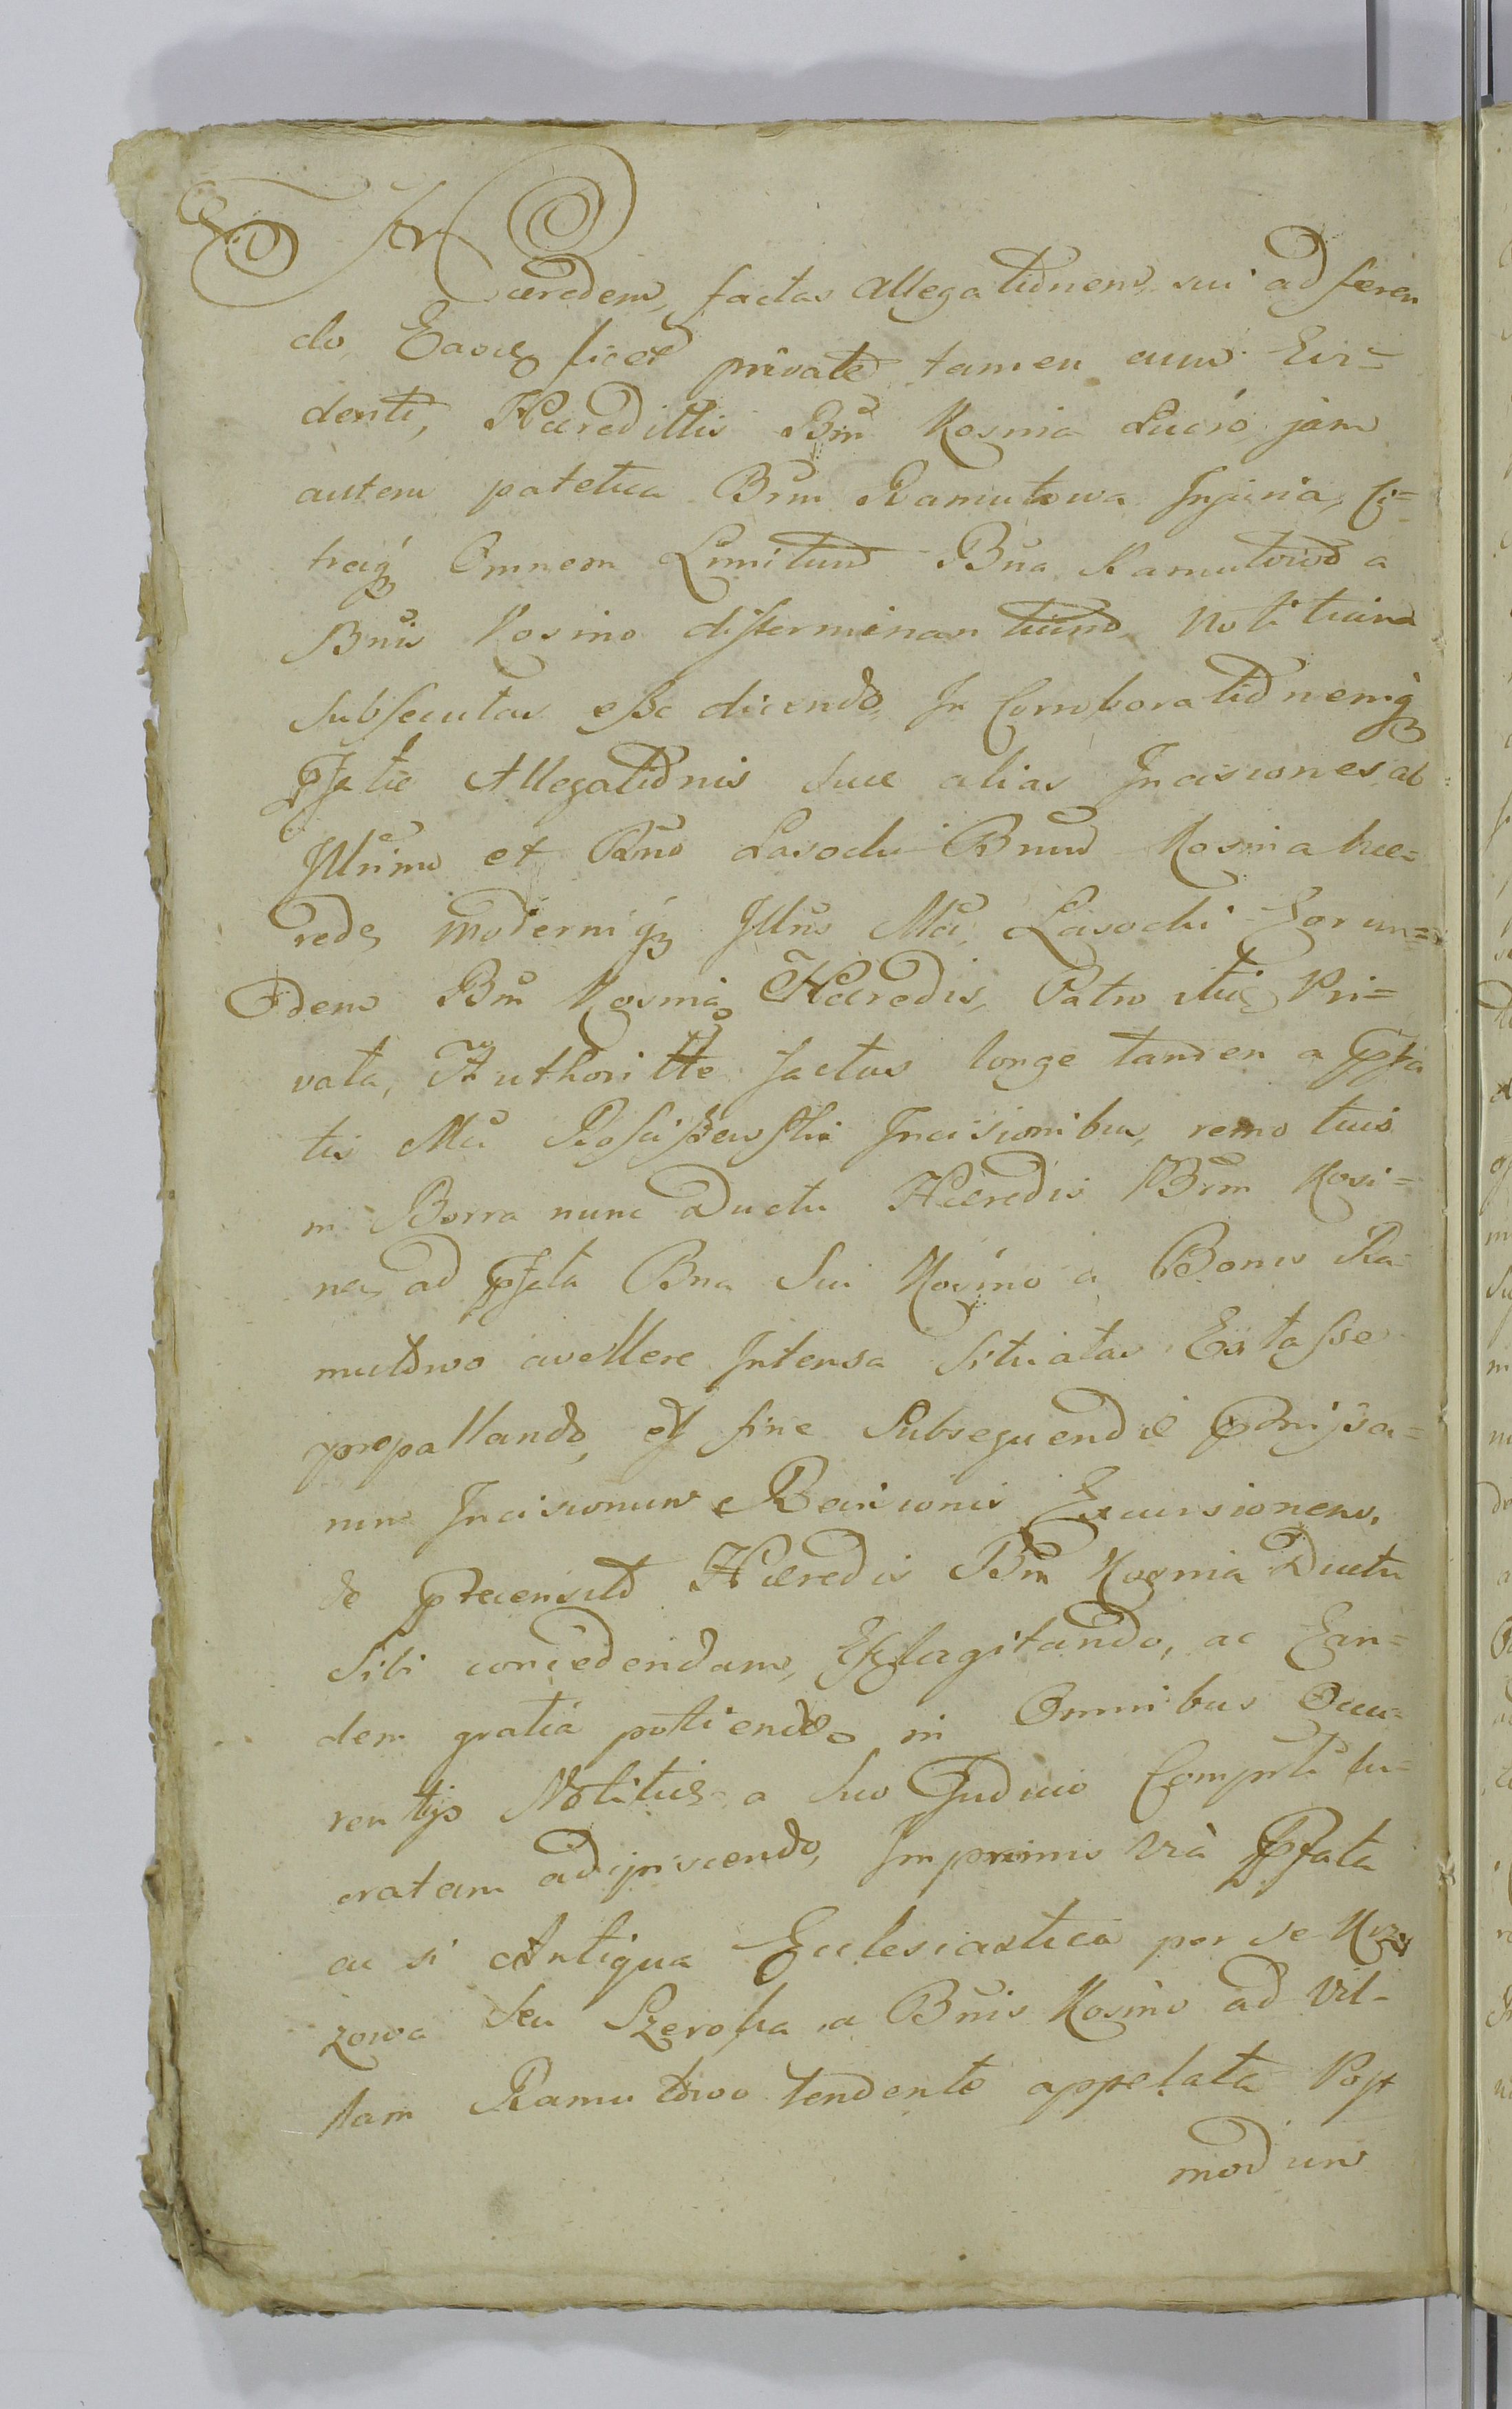 Hæredem, factas Allegationem sui adferen
do, Easq licet private tamen cum Evi=
denti, Hæredittis Bm Kosmin Lucro jam
autem patetica Brm Ramutowa Injuria, Ci=
traq Omnem Limitum Bna Ramutowo a
Bnis Kosino disterminantium Notitiam
subsecutas esse dicendo, In Corroborationemq
Pfatæ Allegationis suæ alias Incisiones ab
Illrimo et Rndo Lasocki Bnum Kosmin hæ=
rede, moderniq Illris Mci Lasocki Eorun=
dem Bm Kosmin Hæredis, Patro Pri=
vata, Authoritte factas longe tamen a Pfa
tis Mci Rosciszewski Incisionibus, remotius
in Borra nunc Ductu Hæredis Brm Kosi=
no, ad Pfata Bna sui Kosino a Bonis Ra=
mutowo avellere Intensa situatas Extasse
propallando, et fine Subsequendæ
rum Incisionum Revisionis Excursionem,
de præcensito Hæredis Bm Kosmin Ductu
Sibi concedendam, Efflagitando, ac Ean=
dem gratia potiendo in Omnibus Occu=
rentijs Notitiis a suo Judicio
oratam adipiscendo, Imprimis via Pfata
ac si Antiqua Ecclesiastica per se
zowa seu Szeroka a Bnis Kosino ad Vil=
lam Ramutowo tendente appellata Post
modum